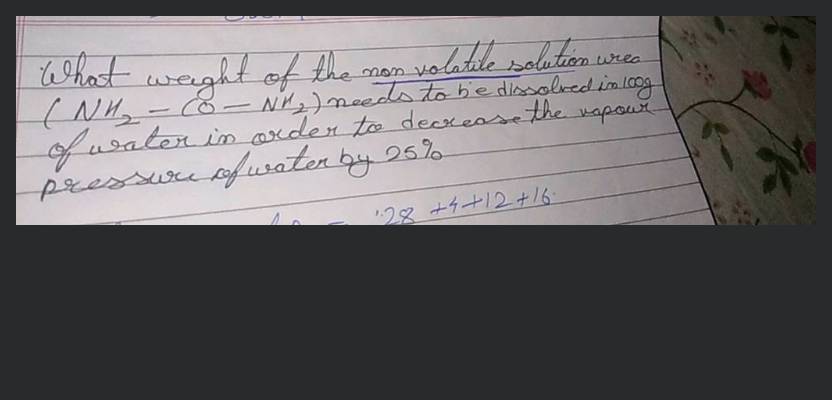 What weight of the non volatile solution urea
(NH2 - CO - NH2) needs to be dissolved in 100g
of water in order to decrease the vapour
pressure of water by 25%
= 28 +4+12+16